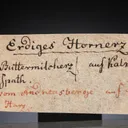 Erdiges Hornerz
Buttermilcherz auf Kalk
Spath.
vom Andreasberge auf
Harz